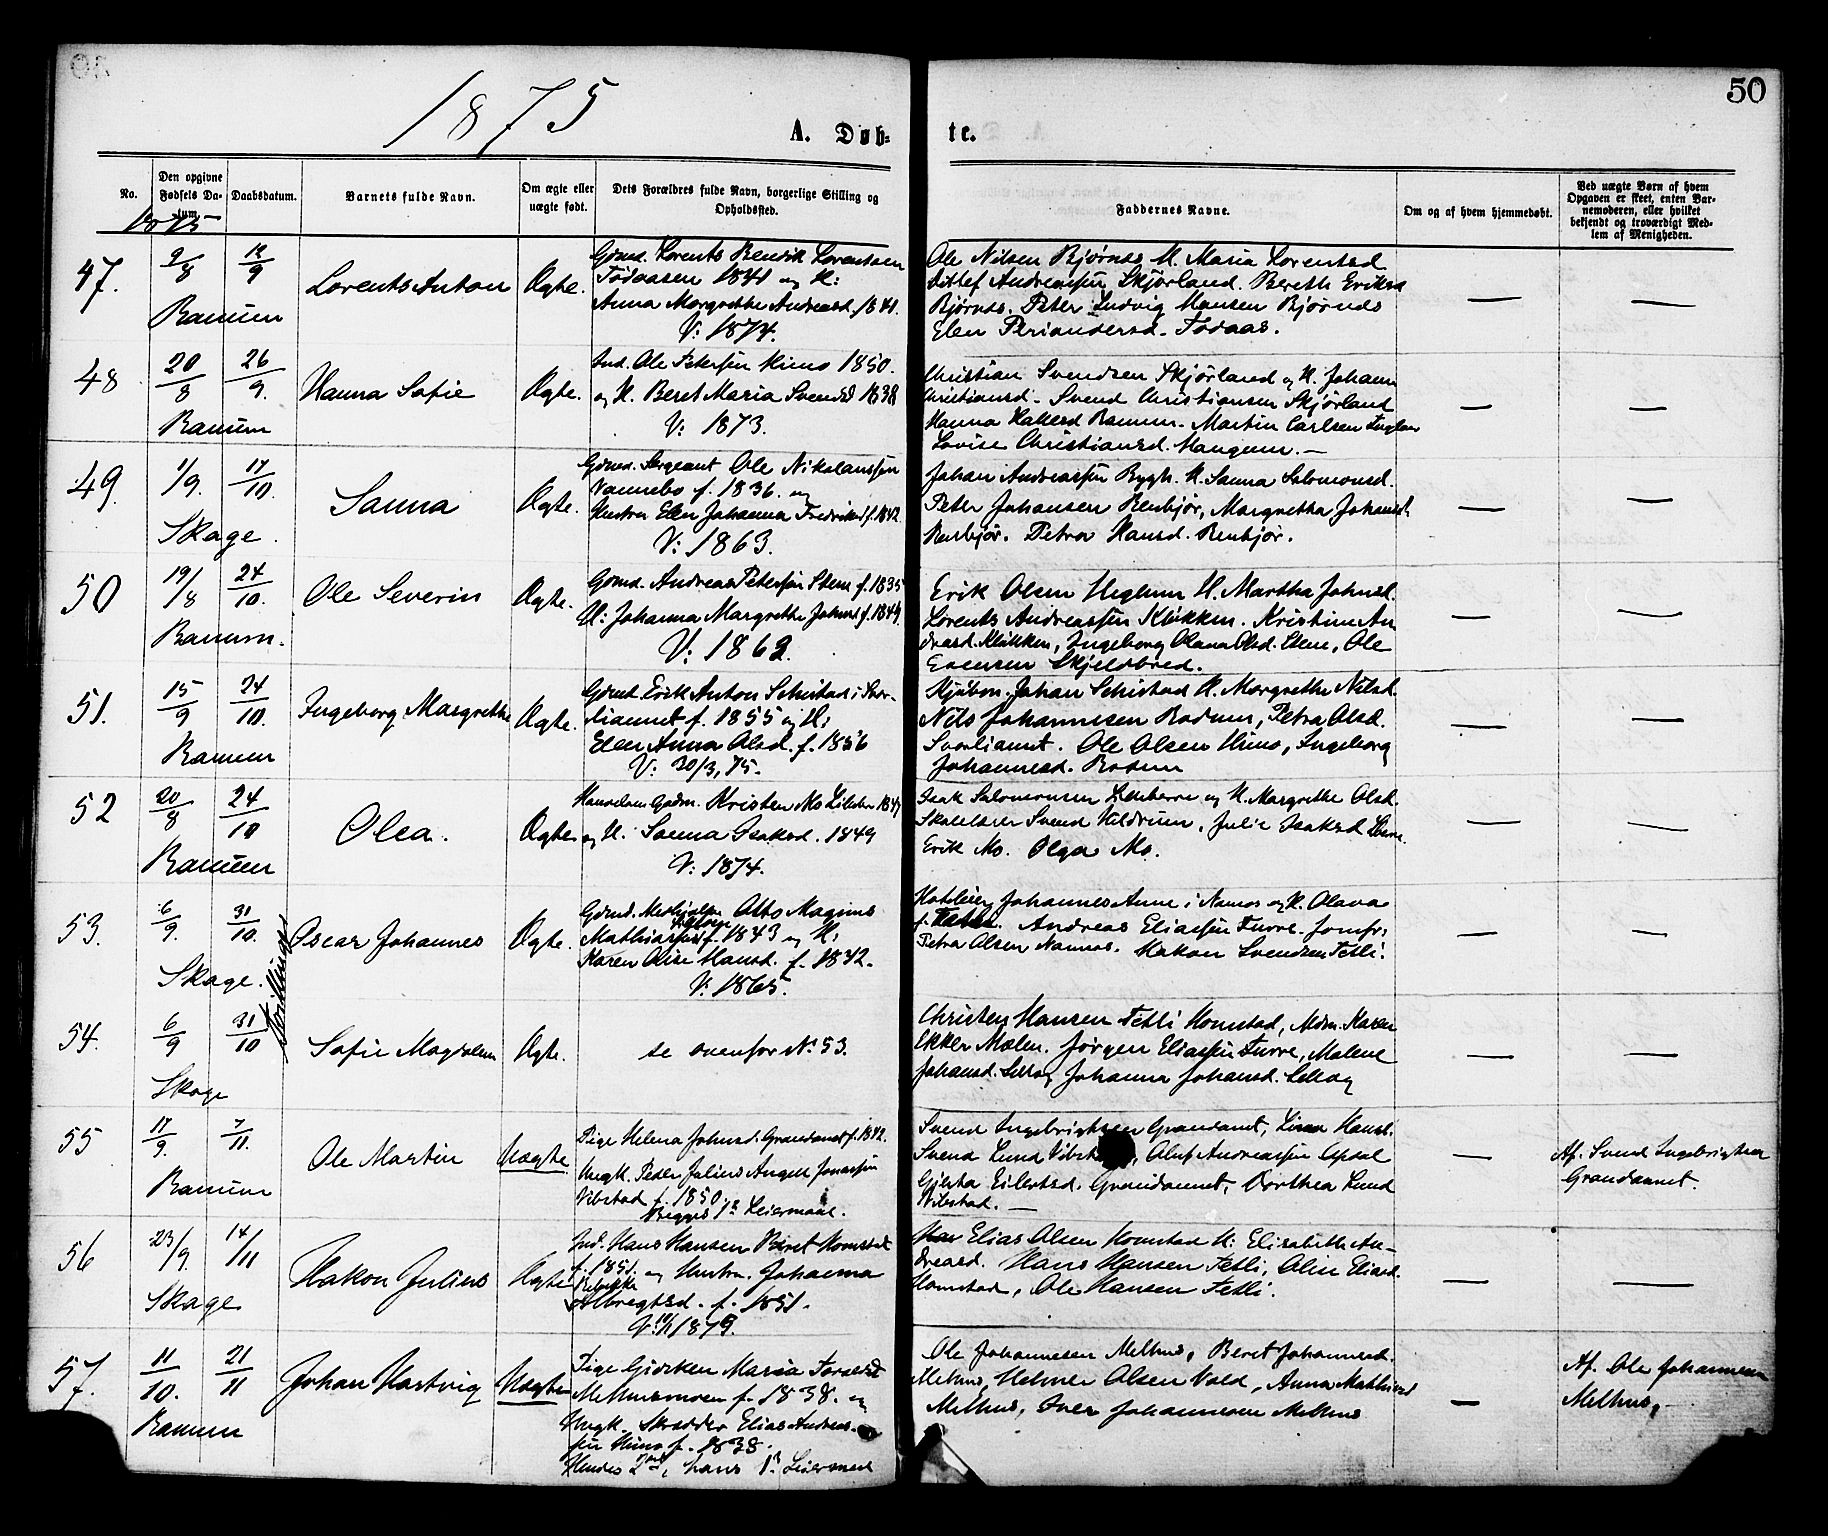 50
1875
A. Døbte.
No.
Den opgivne Fødsels Datum.
Daabsdatum.
Barnets fulde Navn.
Om ægte eller uægte født.
Dets Forældres fulde Navn, borgerlige Stilling og Opholdssted.
Faddernes Navne.
Om og af hvem hjemmedøbt.
Ved uægte Børn af hvem Opgaven er skeet, enten Barnemoderen, eller hvilket bekjendt og troværdigt Medlem af Menigheden.
1875
47. 2/8 12/9 Ranum
Lorents Anton
Ægte.
Gdmd. Lorents Bendik Lorentsen
1841 og H:
Anna Margrethe Andreasd. 1841.
V: 1874.
Ole Nilsen Bjørnes H. Maria Lorentsd
Ditlef Andreassen Skjørland. Bereth Eriksd
Bjørnes. Peter Ludvig Hansen Bjørnes
Elen
48 20/8 26/9. Ranum
Hanna Sofie
Ægte.
Ind. Ole Petersen Himo 1850.
og H. Beret Maria Svendsd 1838
V: 1873.
Christian Svendsen Skjørland og H. Johanna
Christiansd. Svend Christiansen Skjørland
Hanna Ranum. Martin Carlsen
Lovise Christiansd. Mangum.
49. 1/9. 17/10. Skage.
Sanna
Ægte.
Gdmd. Sergeant Ole Nikolaussen
Vannebo f. 1836. og
Hustru Elen Johanna Fredriksd f. 1842.
V: 1863.
Johan Andreassen Bygh. H. Sanna Salomonsd.
Peter Johansen Renbjør, Margretha Johansd.
Renbjør. Petra Hansd. Renbjør.
50 19/8 24/10. Ranum.
Ole Severin
Ægte.
Gdmd. Andreas Petersen Stene f. 1835
H: Johanna Margrethe Johnsd f. 1844.
V: 1862.
Erik Olsen Heglum H. Martha Johnsd.
Lorents Andreassen Kløkken. Kristine An-
dreasd. Kløkken, Ingeborg Olava Olsd. Stene, Ole
Evensen Skjeldbred.
51. 15/9 24/10. Ranum
Ingeborg Margrethe
Ægte.
Gdmd. Erik Anton Sehustad i Svar-
liaunet f. 1855 og H:
Elen Anna Olsd. f. 1856
V: 30/3, 75.
Johan Sehustad H. Margrethe Nilsd.
Nils Johannesen Rodum, Petra Olsd.
Svarliaunet. Ole Olsen Himo, Ingeborg
Johannesd. Rodum
52 20/8 24/10 Ranum
Olea.
Ægte
Gdm. Kristen Mo
og H. Sanna Isaksd. 1849
V: 1874.
Isak Salomonsen og H. Margrethe Olsd.
Skolelærer Svend Hildrum, Julie Isaksd
Erik Mo. Olga Mo.
53. 6/9. 31/10. Skage.
Tvillinger
Oscar Johannes
Ægte.
Gdmd. Otto Magnus
Mathiassen f. 1843 og H:
Karen Olise Hansd. f. 1842.
V: 1865.
Johannes Aune i Namsos og H. Olava
f. Fetli. Andreas Eliassen Furre. Jomfr:
Petra Olsen Namsos. Hakon Svendsen Fetli.
54. 6/9 31/10 Skage
Sofie Magdalena
Ægte.
se ovenfor No 53.
Christen Hansen Fetli Homstad, Mdm. Karen
Ekker Moelen. Jørgen Eliassen Furre, Malene
Johansd. Johanna Johansd.
55 17/9. 7/11. Ranum
Ole Martin
Uægte
Pige Helena Johnsd. Grandaunet f. 1842.
Ungk. Peder Julius August Jonassen
Vibstad f. 1850.
Begges 1ste Leiermaal.
Svend Ingebrigtsen Grandaunet, Lina Hansd.
Svend Lund Vibstad, Oluf Andreassen Opdal
Gjertra Eilertsd. Grandaunet, Dorthea Lund
Vibstad.
Af. Svend Ingebrigtsen
Grandaunet.
56 23/9. 14/11 Skage
Hakon Julius
Ægte
Ind. Hans Hansen Beret Homstad
f. 1851. og Hustru Johanna
Rebekka
Albregtsd. f. 1851.
V: 1879.
Elias Olsen Homstad H: Elisabeth An-
dreasd. Hans Hansen Fetli, Oline Eliasd.
Homstad, Ole Hansen Fetli.
57. 11/10. 21/11 Ranum
Johan Hartvig
Uægte
Pige Gjørken Maria Torsensd
Melhusmoen f. 1838. og
Ungk. Skrædder Elias Andreas-
sen Himo f. 1838.
Hendes 2det, hans 1ste Leiermaal
Ole Johannesen Melhus, Beret Johannesd.
Melhus, Helmer Olsen Vold, Anna Mathiasd
Melhus, Iver Johannesen Melhus
Af. Ole Johannesen
Melhus.